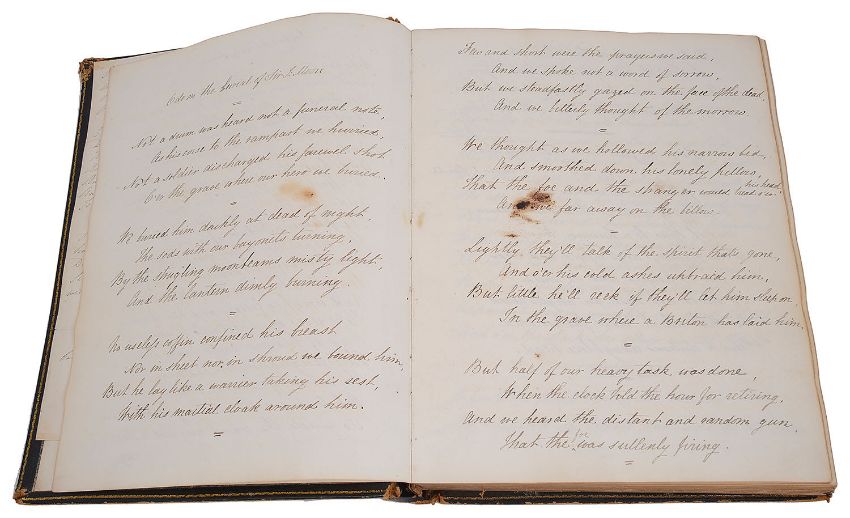 Ode on the burial of Sir J. Moore
Not a drum was heard not a funeral note,
As his corse to the rampart we hurried,
Not a soldier discharged his farewel shot
O'er the grave where our hero we buried.
We buried him darkly at dead of night,
The sods with our bayonets turning,
By the strugling moonbeams misty light,
And the lantern dimly burning.
No useless coffin confined his breast
Nor in sheet nor in shroud we bound him,
But he lay like a warrier taking his rest,
With his martial cloak around him.
Few and short were the prayers we said,
And we spoke not a word of sorrow,
But we steadfastly gazed on the face of the dead,
And we bitterly thought of the morrow
We thought as we hollowed his narrow bed,
And smoothed down his lonely pillow,
That the foe and the stranger would tread o'er his head
And we far away on the billow.
Lightly they'll talk of the spirit that's gone,
And o'er his cold ashes upbraid him,
But little he'll reck if they'll let him sleep on
In the grave where a Briton has laid him,
But half of our heavy task was done
When the clock told the hour for retiring,
And we heard the distant and random gun,
That the foe was sullenly firing.